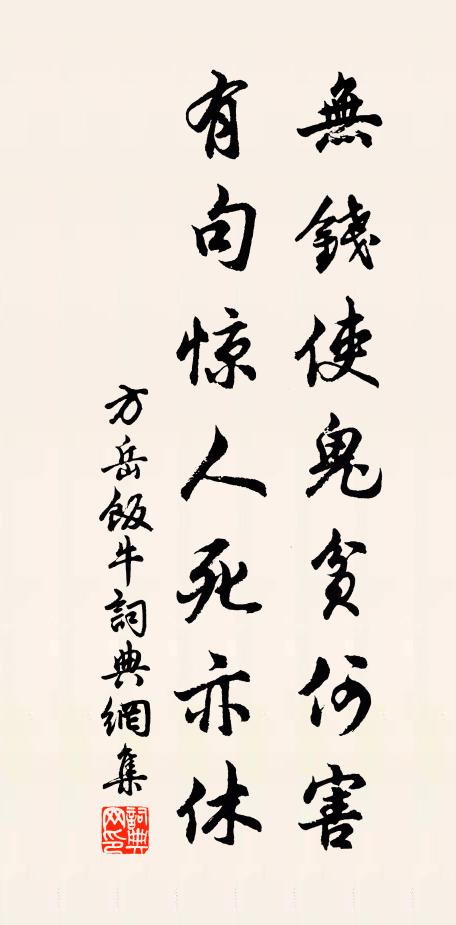 無錢使鬼貧何害
有句惊人死亦休
方岳飯牛詞典網集
詞典網印